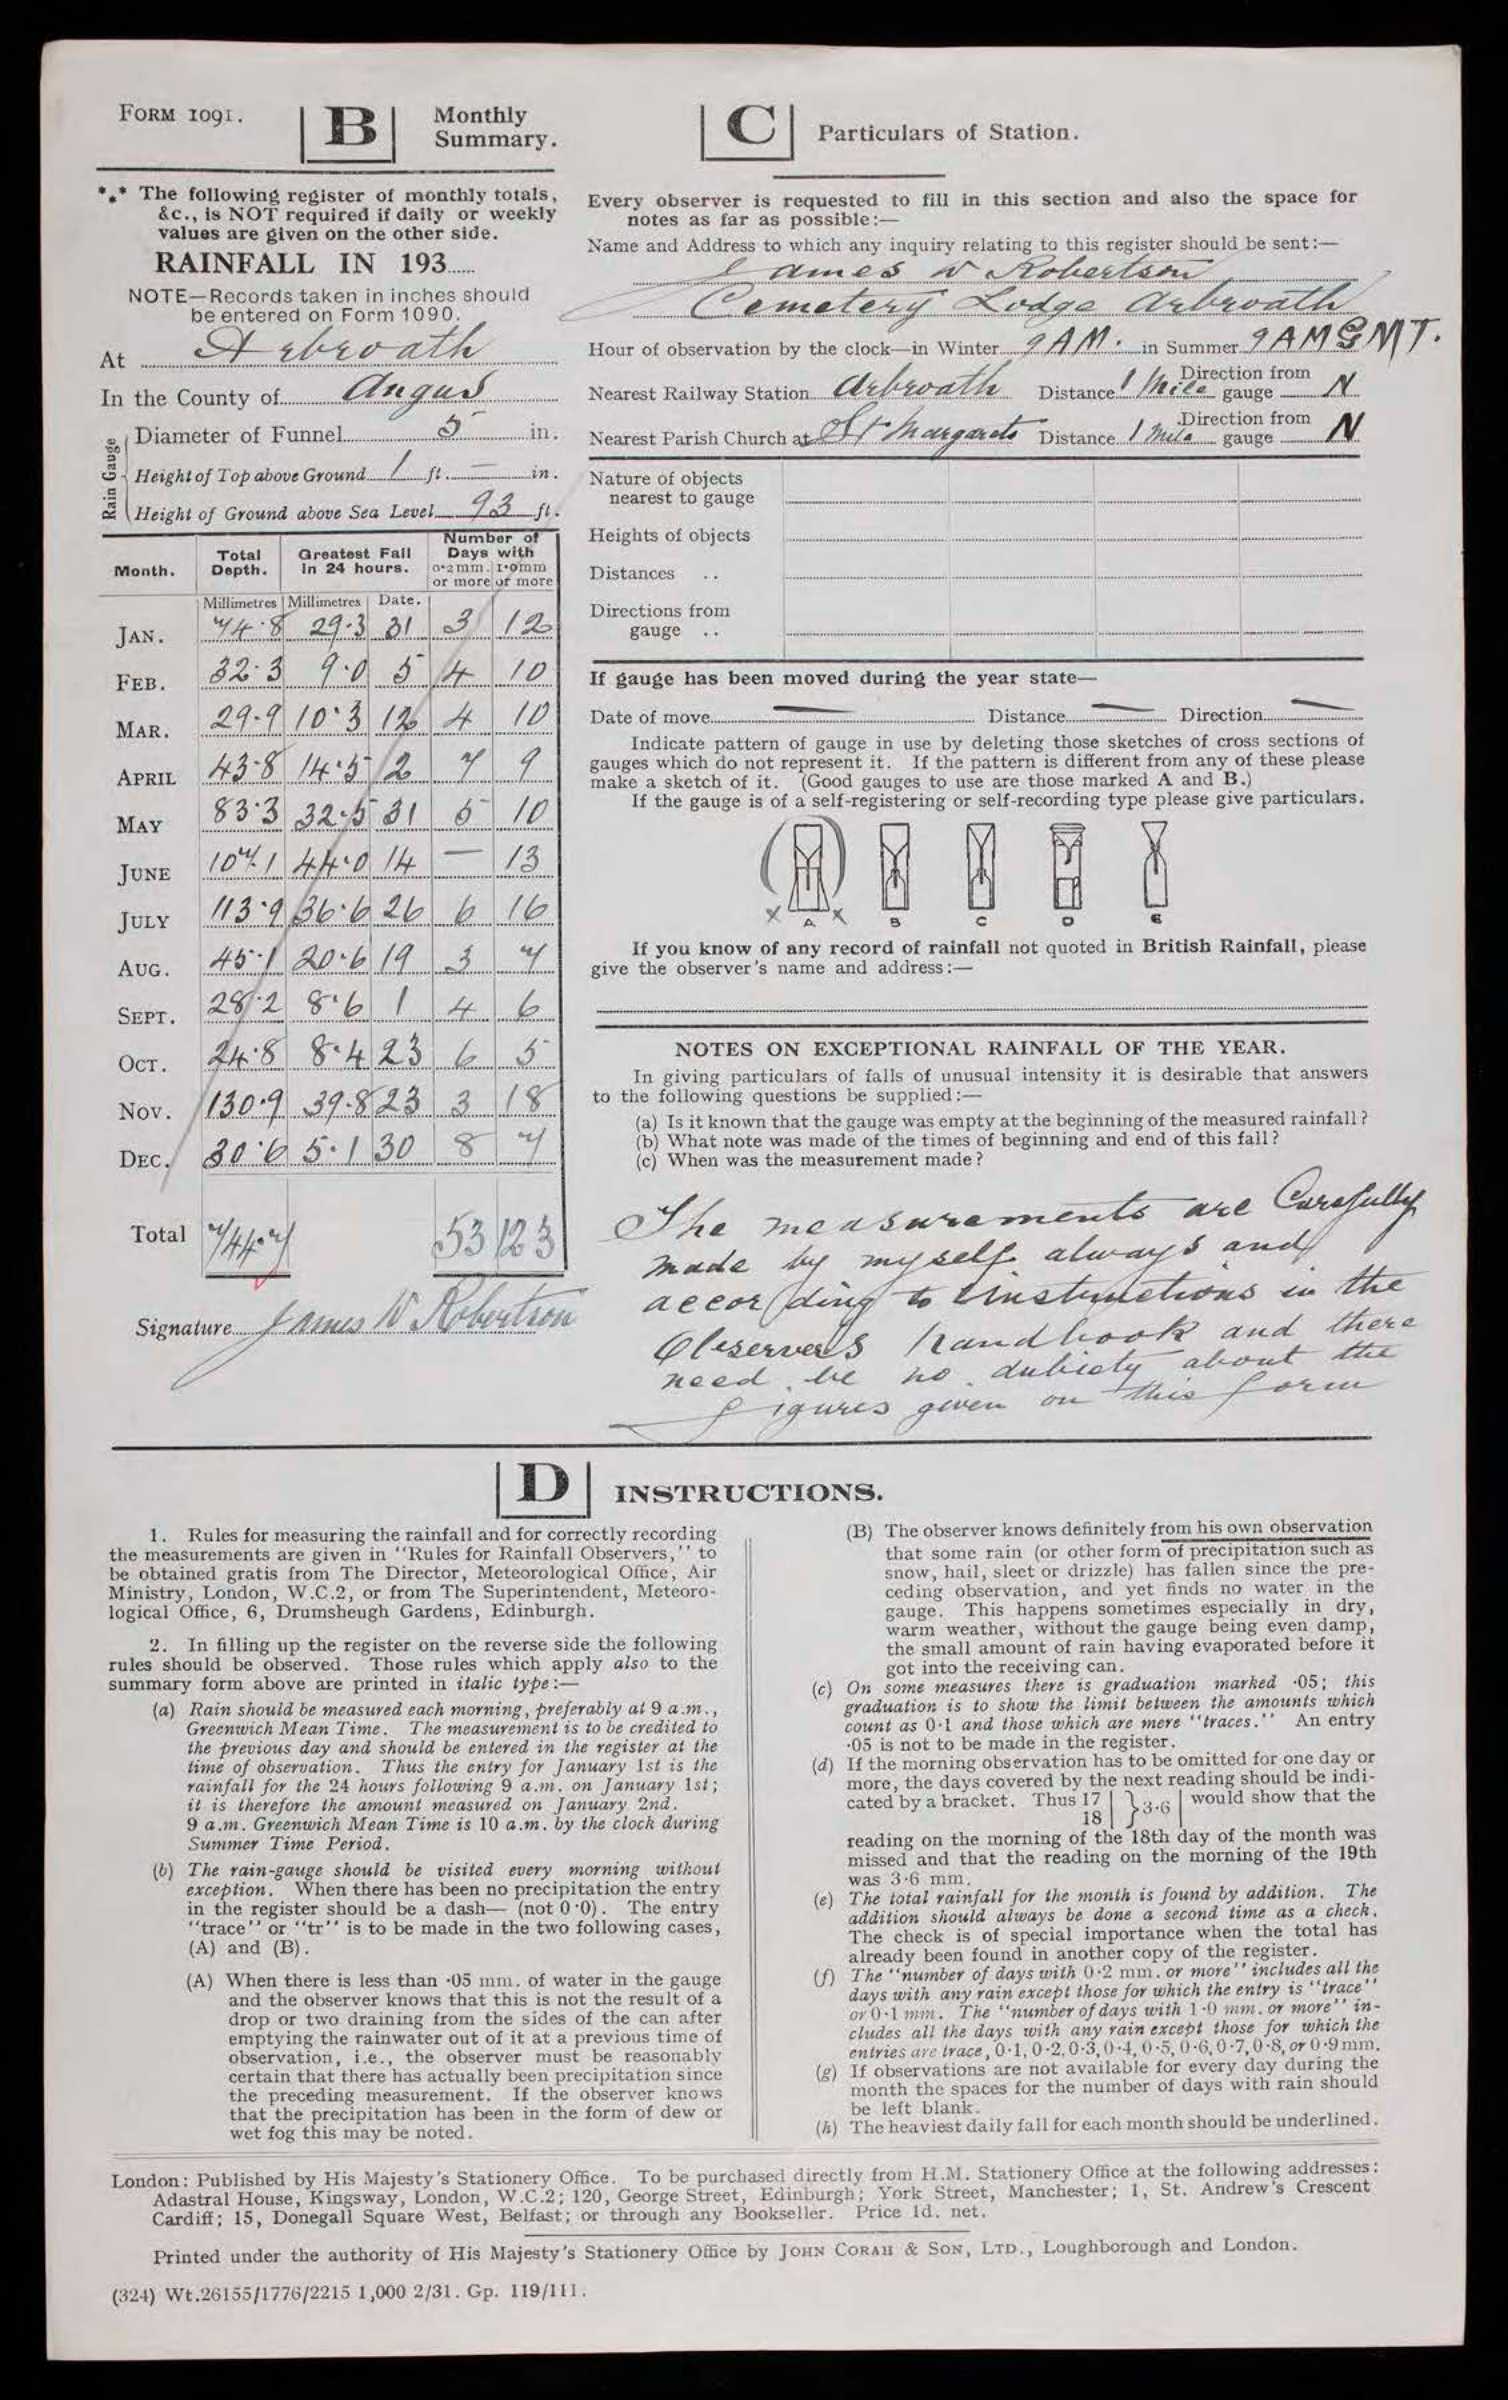 FORM 1091.
B
Monthly
Summary.
*** The following register of monthly totals,
&c., is NOT required if daily or weekly
values are given on the other side.
RAINFALL IN 193......
NOTE—Records taken in inches should
be entered on Form 1090.
At Arbroath
In the County of Angus
Rain Gauge
Diameter of Funnel 5 in.
Height of Top above Ground 1 ft. — in.
Height of Ground above Sea Level 93 ft.
Month. Total Depth. Greatest Fall in 24 hours. Number of Days with
0·2 mm. or more 1·0 mm or more
Millimetres Millimetres Date.
JAN. 74·8 29·3 31 3 12
FEB. 32·3 9·0 5 4 10
MAR. 29·9 10·3 12 4 10
APRIL 43·8 14·5 2 7 9
MAY 83·3 32·5 31 5 10
JUNE 107·1 44·0 14 — 13
JULY 113·9 36·6 26 6 16
AUG. 45·1 20·6 19 3 7
SEPT. 28·2 8·6 1 4 6
OCT. 24·8 8·4 23 6 5
NOV. 130·9 39·8 23 3 18
DEC. 30·6 5·1 30 8 7
Total 744·7 53 123
Signature James W Robertson
C
Particulars of Station.
Every observer is requested to fill in this section and also the space for
notes as far as possible:—
Name and Address to which any inquiry relating to this register should be sent:—
James W Robertson
Cemetery Lodge Arbroath
Hour of observation by the clock—in Winter 9 AM. in Summer 9 AM GMT.
Nearest Railway Station Arbroath Distance 1 Mile Direction from gauge N
Nearest Parish Church at St Margarets Distance 1 Mile Direction from gauge N
Nature of objects
nearest to gauge
Heights of objects
Distances ..
Directions from
gauge ..
If gauge has been moved during the year state—
Date of move — Distance — Direction —
Indicate pattern of gauge in use by deleting those sketches of cross sections of
gauges which do not represent it. If the pattern is different from any of these please
make a sketch of it. (Good gauges to use are those marked A and B.)
If the gauge is of a self-registering or self-recording type please give particulars.
x A x B C D E
If you know of any record of rainfall not quoted in British Rainfall, please
give the observer's name and address:—
NOTES ON EXCEPTIONAL RAINFALL OF THE YEAR.
In giving particulars of falls of unusual intensity it is desirable that answers
to the following questions be supplied:—
(a) Is it known that the gauge was empty at the beginning of the measured rainfall?
(b) What note was made of the times of beginning and end of this fall?
(c) When was the measurement made?
The measurements are Carefully
made by myself always and
according to instructions in the
Observers handbook and there
need be no dubiety about the
figures given on this form
D
INSTRUCTIONS.
1. Rules for measuring the rainfall and for correctly recording
the measurements are given in "Rules for Rainfall Observers," to
be obtained gratis from The Director, Meteorological Office, Air
Ministry, London, W.C.2, or from The Superintendent, Meteoro-
logical Office, 6, Drumsheugh Gardens, Edinburgh.
2. In filling up the register on the reverse side the following
rules should be observed. Those rules which apply also to the
summary form above are printed in italic type:—
(a) Rain should be measured each morning, preferably at 9 a.m.,
Greenwich Mean Time. The measurement is to be credited to
the previous day and should be entered in the register at the
time of observation. Thus the entry for January 1st is the
rainfall for the 24 hours following 9 a.m. on January 1st;
it is therefore the amount measured on January 2nd.
9 a.m. Greenwich Mean Time is 10 a.m. by the clock during
Summer Time Period.
(b) The rain-gauge should be visited every morning without
exception. When there has been no precipitation the entry
in the register should be a dash— (not 0·0). The entry
"trace" or "tr" is to be made in the two following cases,
(A) and (B).
(A) When there is less than ·05 mm. of water in the gauge
and the observer knows that this is not the result of a
drop or two draining from the sides of the can after
emptying the rainwater out of it at a previous time of
observation, i.e., the observer must be reasonably
certain that there has actually been precipitation since
the preceding measurement. If the observer knows
that the precipitation has been in the form of dew or
wet fog this may be noted.
(B) The observer knows definitely from his own observation
that some rain (or other form of precipitation such as
snow, hail, sleet or drizzle) has fallen since the pre-
ceding observation, and yet finds no water in the
gauge. This happens sometimes especially in dry,
warm weather, without the gauge being even damp,
the small amount of rain having evaporated before it
got into the receiving can.
(c) On some measures there is graduation marked ·05; this
graduation is to show the limit between the amounts which
count as 0·1 and those which are mere "traces." An entry
·05 is not to be made in the register.
(d) If the morning observation has to be omitted for one day or
more, the days covered by the next reading should be indi-
cated by a bracket. Thus 17 | } 3·6 | would show that the
18 |
reading on the morning of the 18th day of the month was
missed and that the reading on the morning of the 19th
was 3·6 mm.
(e) The total rainfall for the month is found by addition. The
addition should always be done a second time as a check.
The check is of special importance when the total has
already been found in another copy of the register.
(f) The "number of days with 0·2 mm. or more" includes all the
days with any rain except those for which the entry is "trace"
or 0·1 mm. The "number of days with 1·0 mm. or more" in-
cludes all the days with any rain except those for which the
entries are trace, 0·1, 0·2, 0·3, 0·4, 0·5, 0·6, 0·7, 0·8, or 0·9 mm.
(g) If observations are not available for every day during the
month the spaces for the number of days with rain should
be left blank.
(h) The heaviest daily fall for each month should be underlined.
London: Published by His Majesty's Stationery Office. To be purchased directly from H.M. Stationery Office at the following addresses:
Adastral House, Kingsway, London, W.C.2; 120, George Street, Edinburgh; York Street, Manchester; 1, St. Andrew's Crescent
Cardiff; 15, Donegall Square West, Belfast; or through any Bookseller. Price 1d. net.
Printed under the authority of His Majesty's Stationery Office by JOHN CORAH & SON, LTD., Loughborough and London.
(324) Wt.26155/1776/2215 1,000 2/31. Gp. 119/111.